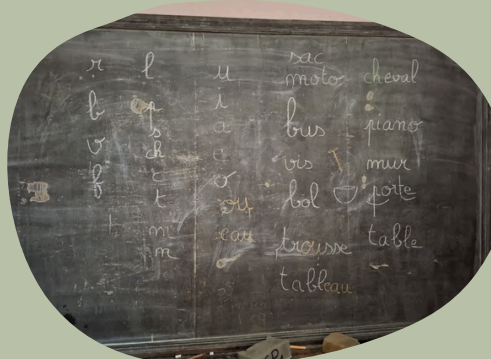 r
b
v
f
l
p
s
ch
c
t
m
n
u
i
a
e
o
ou
eau
sac
moto
bus
vis
bol
trousse
tableau
cheval
piano
mur
porte
table